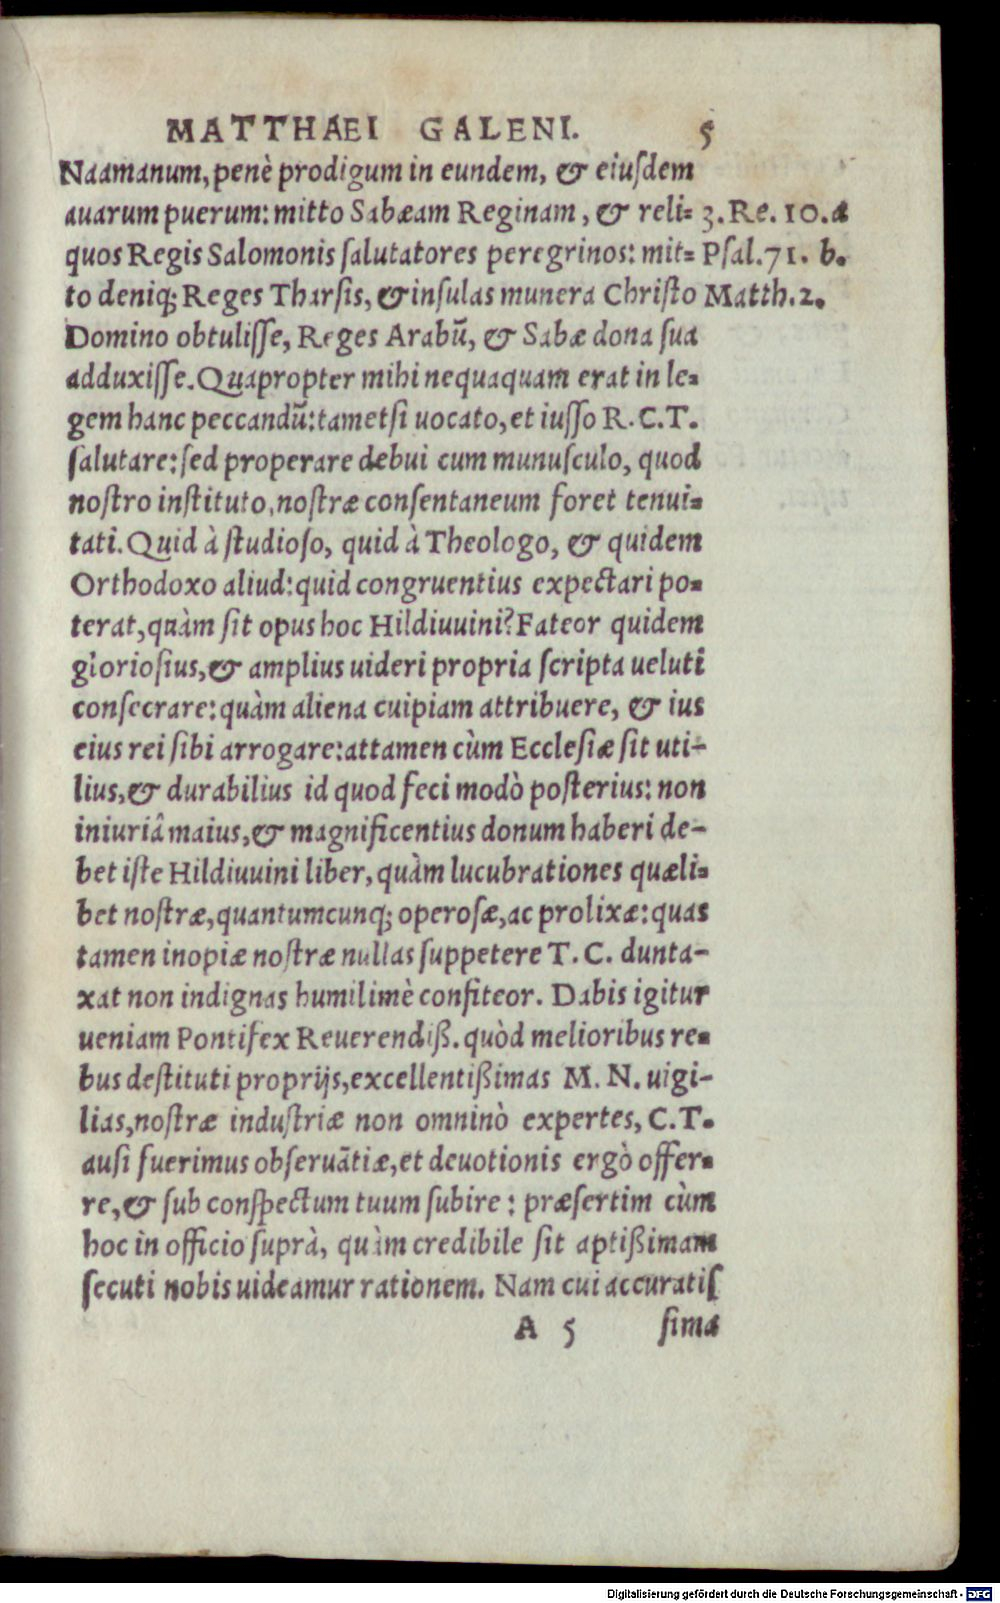 MATTHAEI GALENI. 5
Naamanum, penè prodigum in eundem, & eiusdem
auarum puerum: mitto Sabæam Reginam, & reli= 3. Re. 10. a
quos Regis Salomonis salutatores peregrinos: mit= Psal. 71. b.
to deniq; Reges Tharsis, & insulas munera Christo Matth. 2.
Domino obtulisse, Reges Arabū, & Sabæ dona sua
adduxisse. Quapropter mihi nequaquam erat in le=
gem hanc peccandū: tametsi uocato, et iusso R. C. T.
salutare: sed properare debui cum munusculo, quod
nostro instituto, nostræ consentaneum foret tenui=
tati. Quid à studioso, quid à Theologo, & quidem
Orthodoxo aliud: quid congruentius expectari po=
terat, quàm sit opus hoc Hildiuuini? Fateor quidem
gloriosius, & amplius uideri propria scripta ueluti
consecrare: quàm aliena cuipiam attribuere, & ius
eius rei sibi arrogare: attamen cùm Ecclesiæ sit uti-
lius, & durabilius id quod feci modò posterius: non
iniuriâ maius, & magnificentius donum haberi de-
bet iste Hildiuuini liber, quàm lucubrationes quæli=
bet nostræ, quantumcunq; operosæ, ac prolixæ: quas
tamen inopiæ nostræ nullas suppetere T. C. dunta-
xat non indignas humilimè confiteor. Dabis igitur
ueniam Pontifex Reuerendiß. quòd melioribus re=
bus destituti proprijs, excellentißimas M. N. uigi-
lias, nostræ industriæ non omninò expertes, C. T.
ausi fuerimus obseruātiæ, et deuotionis ergò offer=
re, & sub conspectum tuum subire: præsertim cùm
hoc in officio suprà, quàm credibile sit aptißimam
secuti nobis uideamur rationem. Nam cui accuratis
A 5 sima
Digitalisierung gefördert durch die Deutsche Forschungsgemeinschaft - DFG